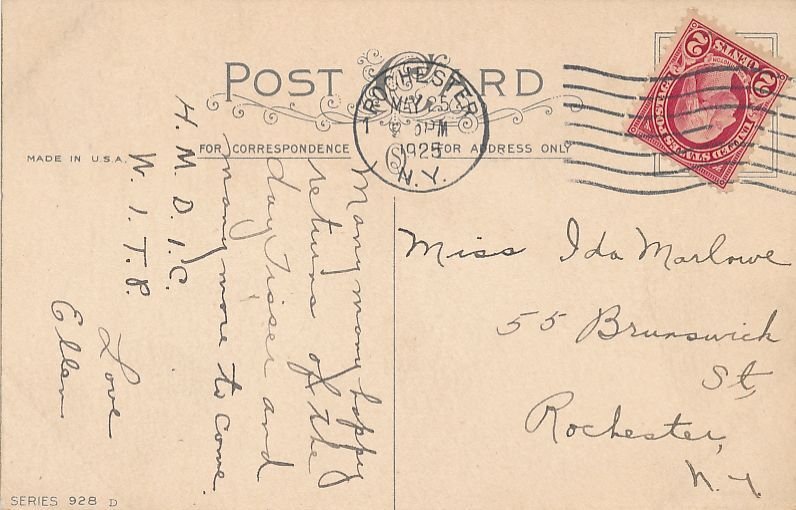 POST CARD
ROCHESTER
MAY 25
1925
N.Y.
2 CENTS 2
FOR CORRESPONDENCE
FOR ADDRESS ONLY
MADE IN U.S.A.
Many many happy
returns of the
day, Tisser and
many more to come.
H. M. D. I. C.
W. I. T. P.
Love
Ellen
Miss Ida Marlowe
55 Brunswick
St,
Rochester,
N.Y.
SERIES 928 D